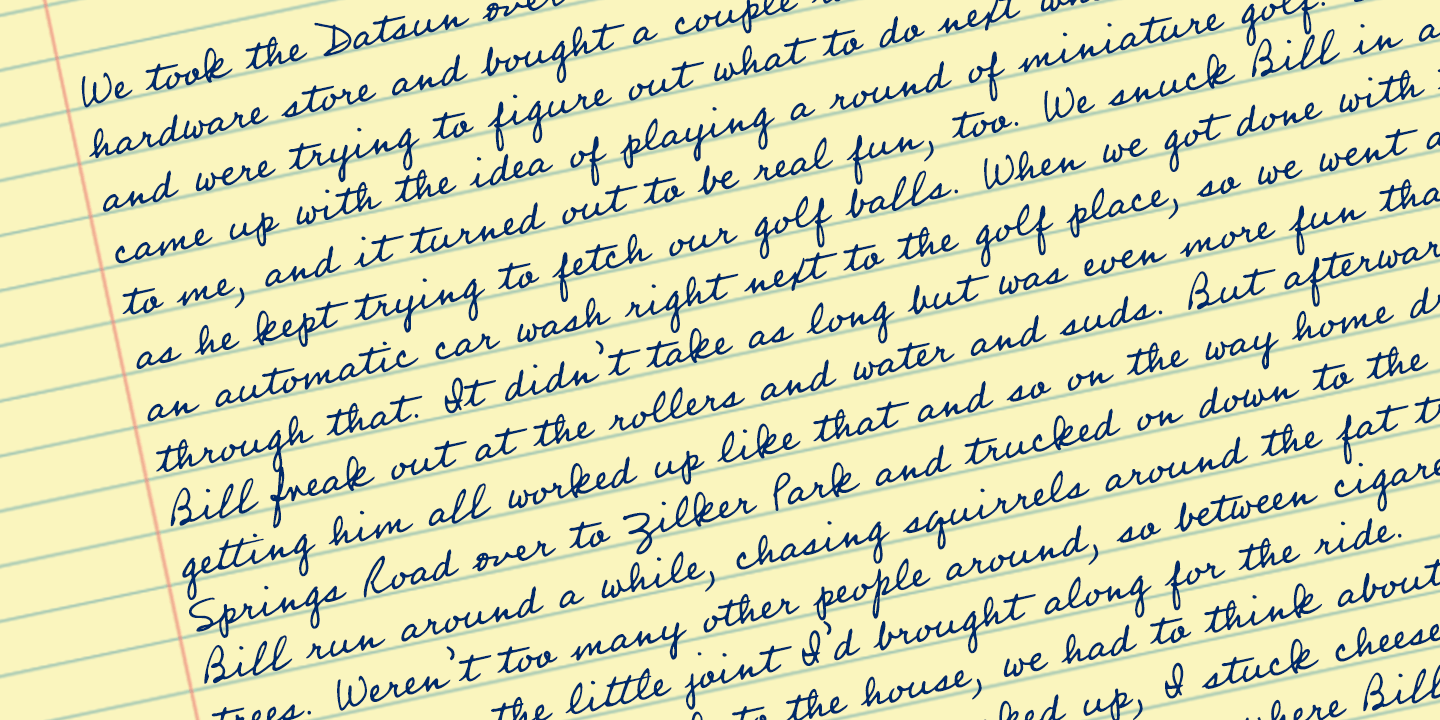 We took the Datsun over
hardware store and bought a couple
and were trying to figure out what to do next
came up with the idea of playing a round of miniature golf.
to me, and it turned out to be real fun, too. We snuck Bill in a
as he kept trying to fetch our golf balls. When we got done with
an automatic car wash right next to the golf place, so we went a
through that. It didn't take as long but was even more fun tha
Bill freak out at the rollers and water and suds. But afterwar
getting him all worked up like that and so on the way home d
Springs Road over to Zilker Park and trucked on down to the
Bill run around a while, chasing squirrels around the fat t
trees. Weren't too many other people around, so between cigare
the little joint I'd brought along for the ride.
to the house, we had to think about
ked up, I stuck cheese
where Bill